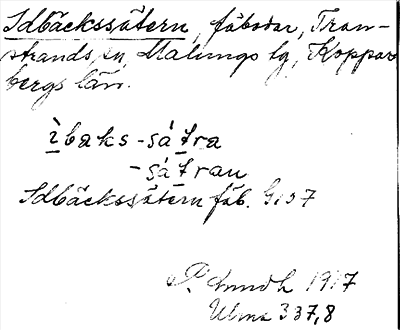 Idbäckssätern, fäbodar, Tran-
strands sn, Malungs tg, Koppar
bergs län.
ìbaks-sátra
-sátran
Idbäckssätern fäb. G107
P. Lundh 1917
Ulma 337,8